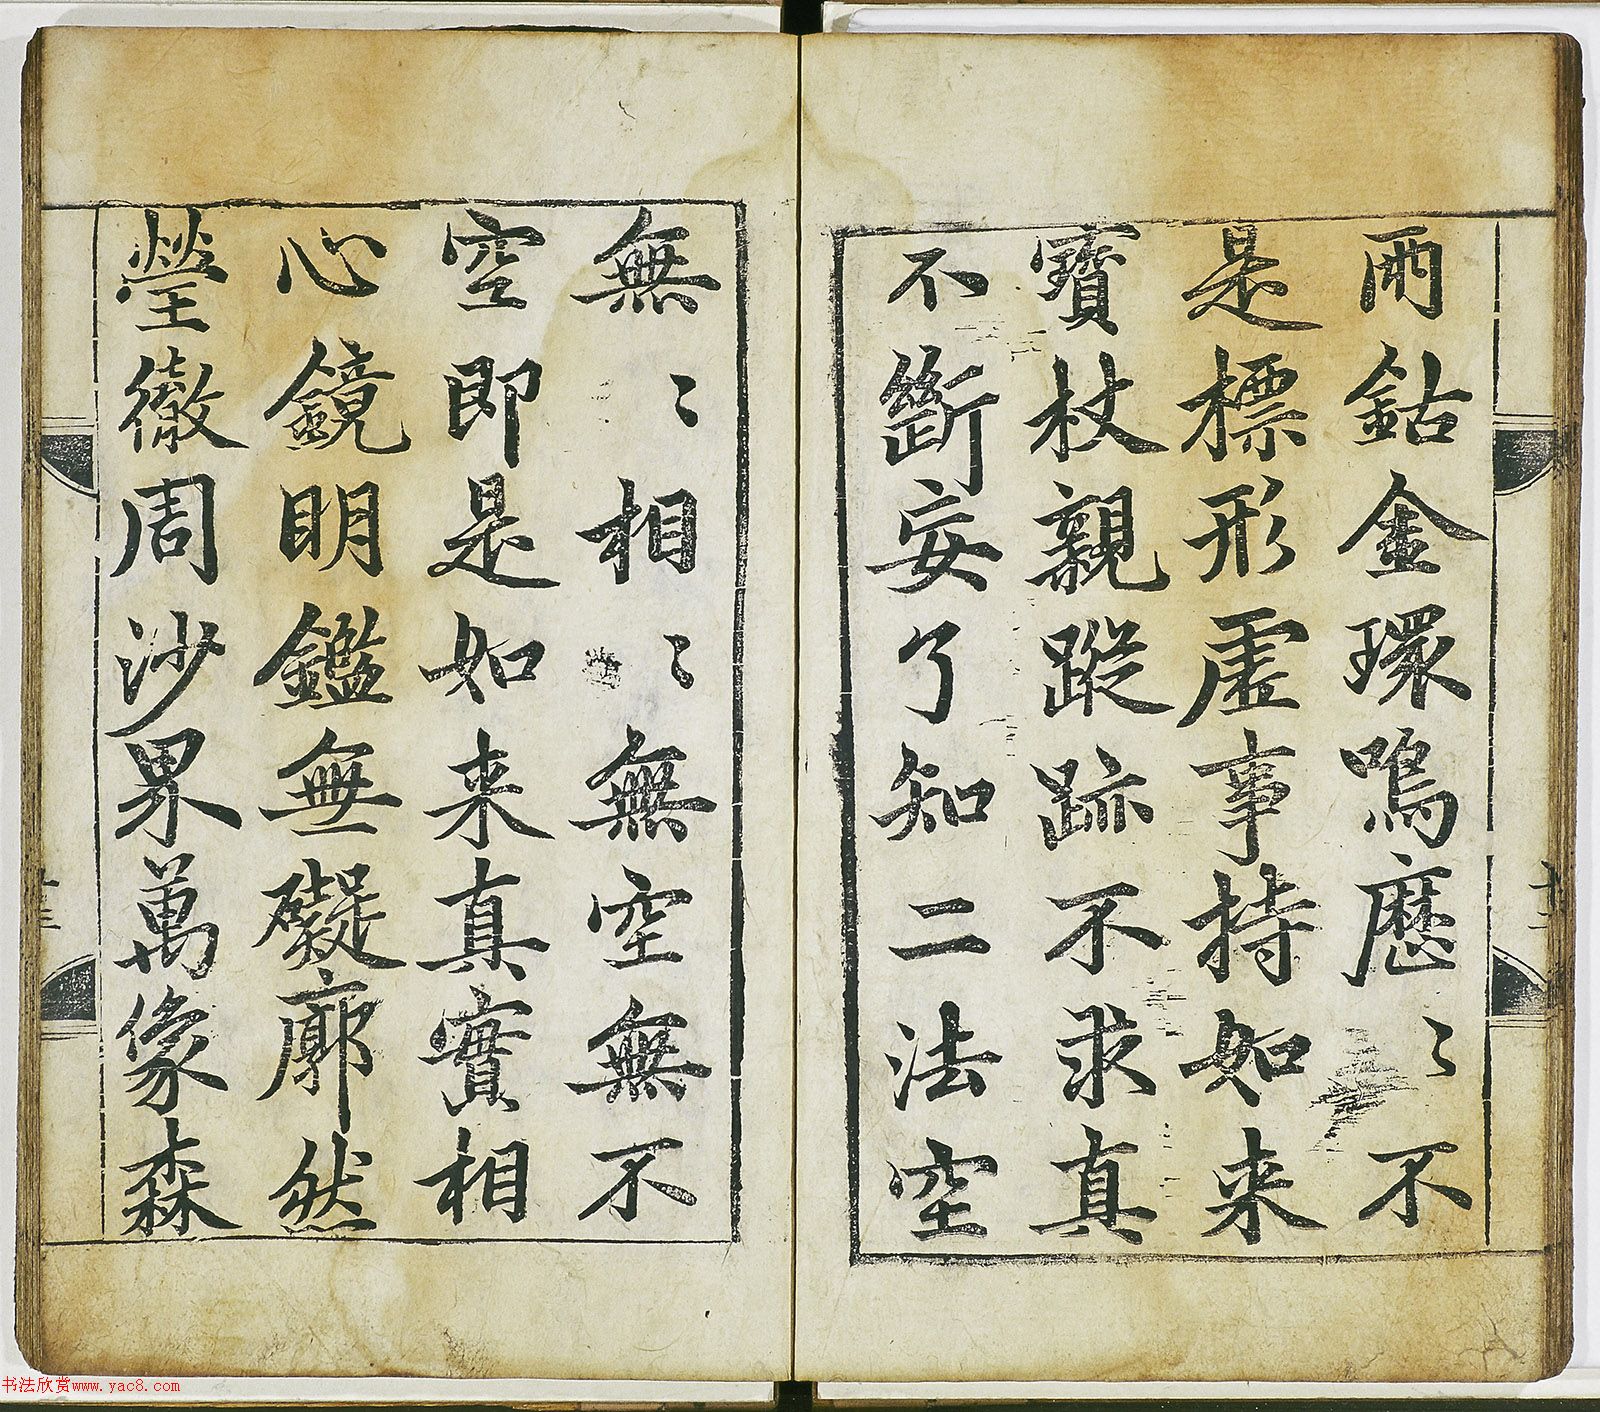 兩鈷金環鳴歷〻不
是標形虛事持如来
寶杖親蹤跡不求真
不斷妄了知二法空
無〻相〻無空無不
空即是如来真實相
心鏡明鑑無礙廓然
瑩徹周沙界萬象森
书法欣赏www.yac8.com